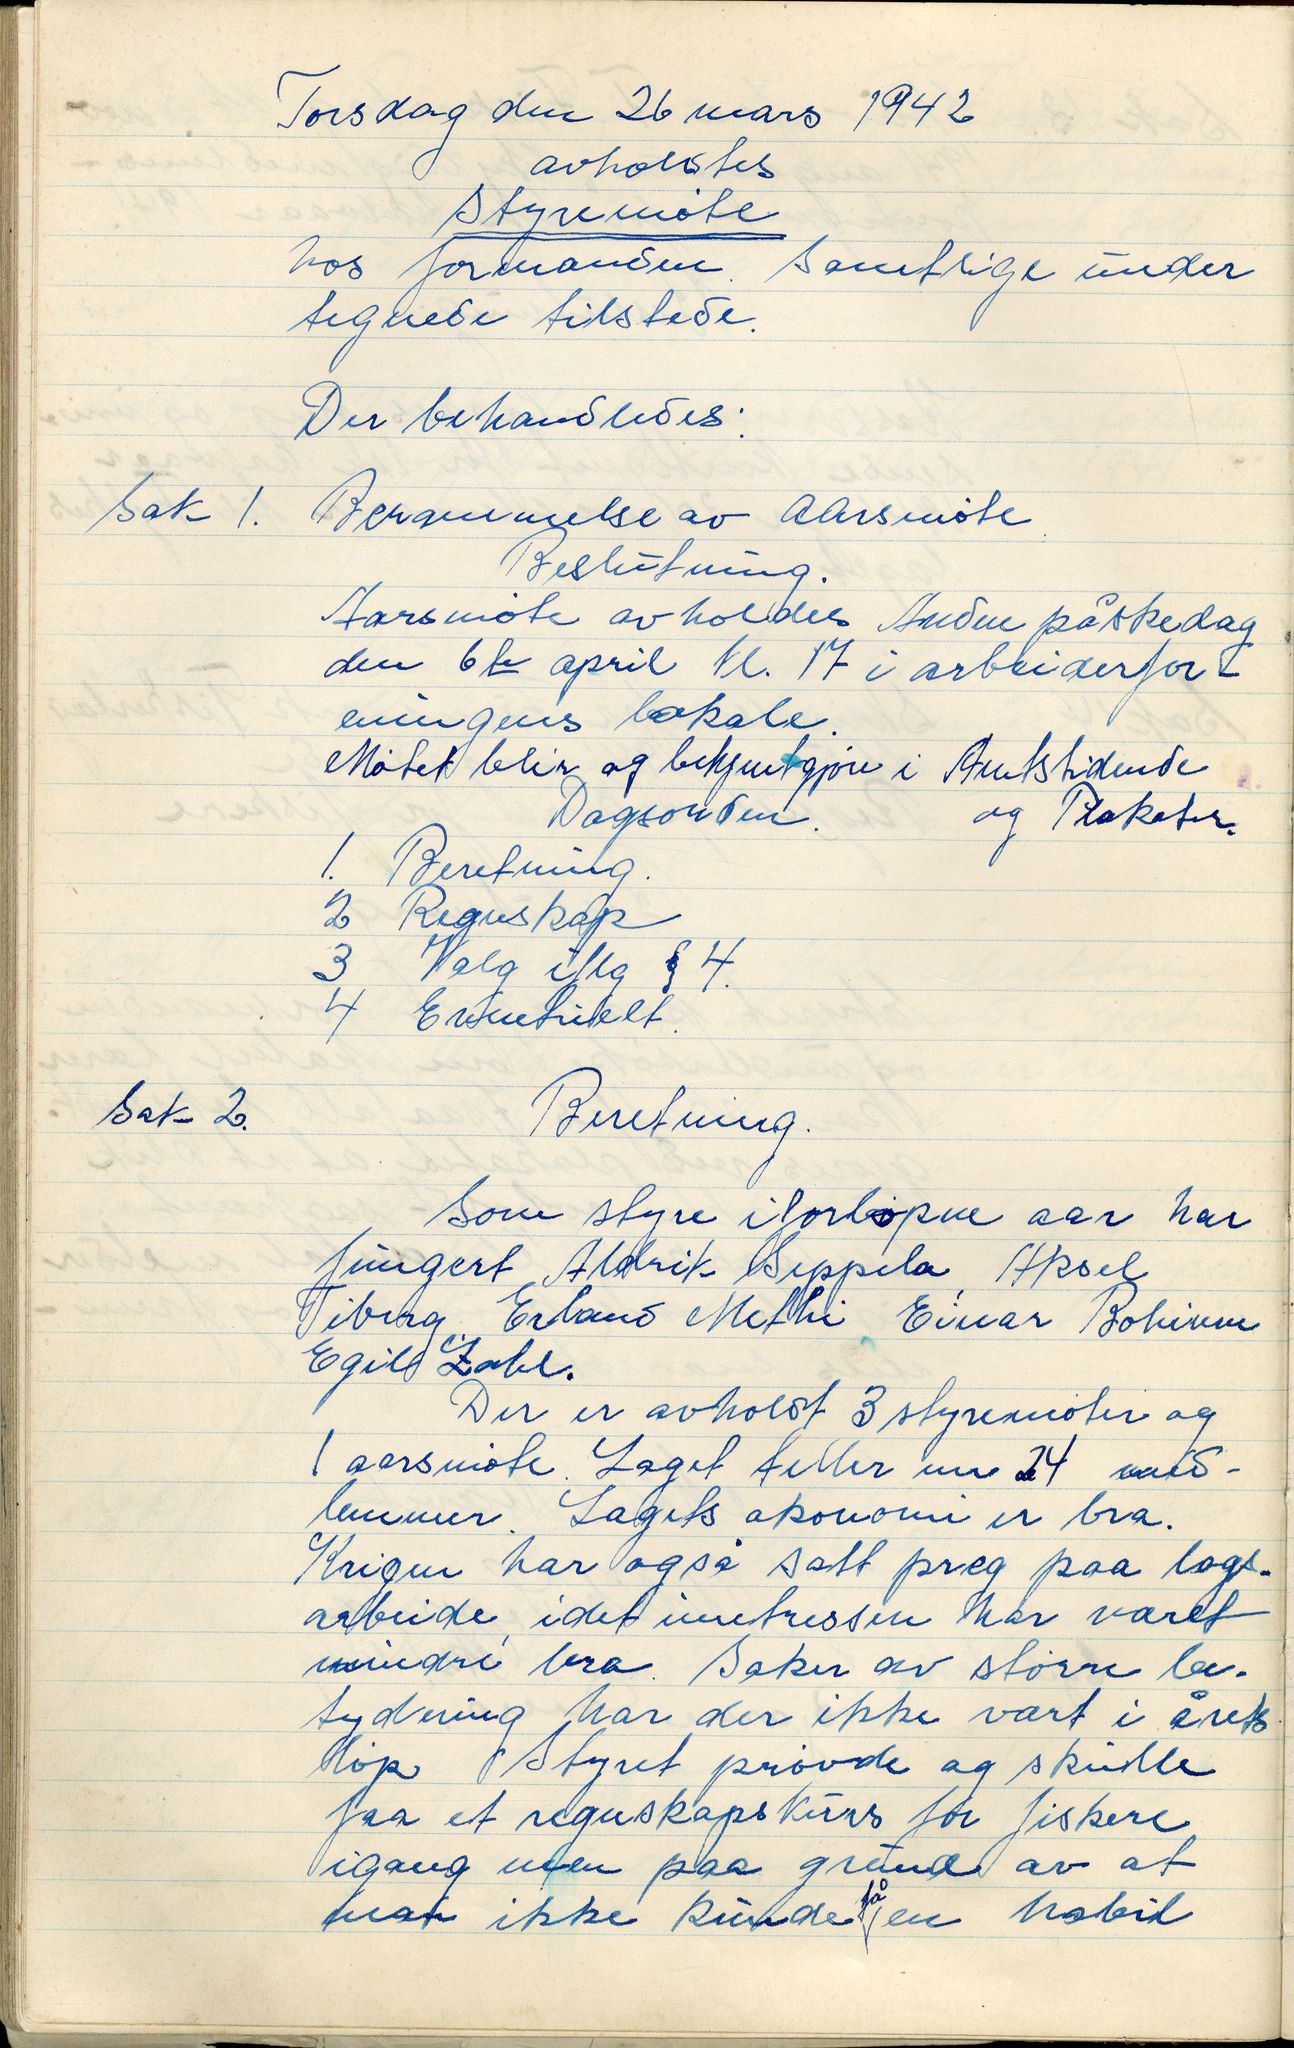 Torsdag den 26 mars 1942
avholdtes
Styremöte
hos formanden. Samtlige under
tegnede tilstede.
Der behandledes:
Sak 1. Berammelse av aarsmöte.
Beslutning.
Aarsmöte avholdes Anden påskedag
den 6te april kl. 17 i arbeiderfor-
eningens lokale.
Mötet blir og bekjentgjøre i Amtstidende
Dagsorden. og Plakater.
1. Beretning.
2 Regnskap
3 Valg iflg § 4.
4 Eventuelt.
Sak 2. Beretning.
Som styre i forløpne aar har
fungert Aldrik Seppela, Aksel
Tiberg Erland Methi Einar Bohinen
Egil Zahl.
Der er avholdt 3 styremöter og
1 aarsmöte. Laget teller nu 24 med-
lemmer. Lagets økonomi er bra.
Krigen har også satt preg paa lags-
arbeide, idet interessen har været
mindre bra. Saker av större be-
tydning har der ikke vært i årets
löp. Styret prövde og skulle
faa et regnskapskurs for fiskere
igang men paa grund av at
man ikke kunde få en habil